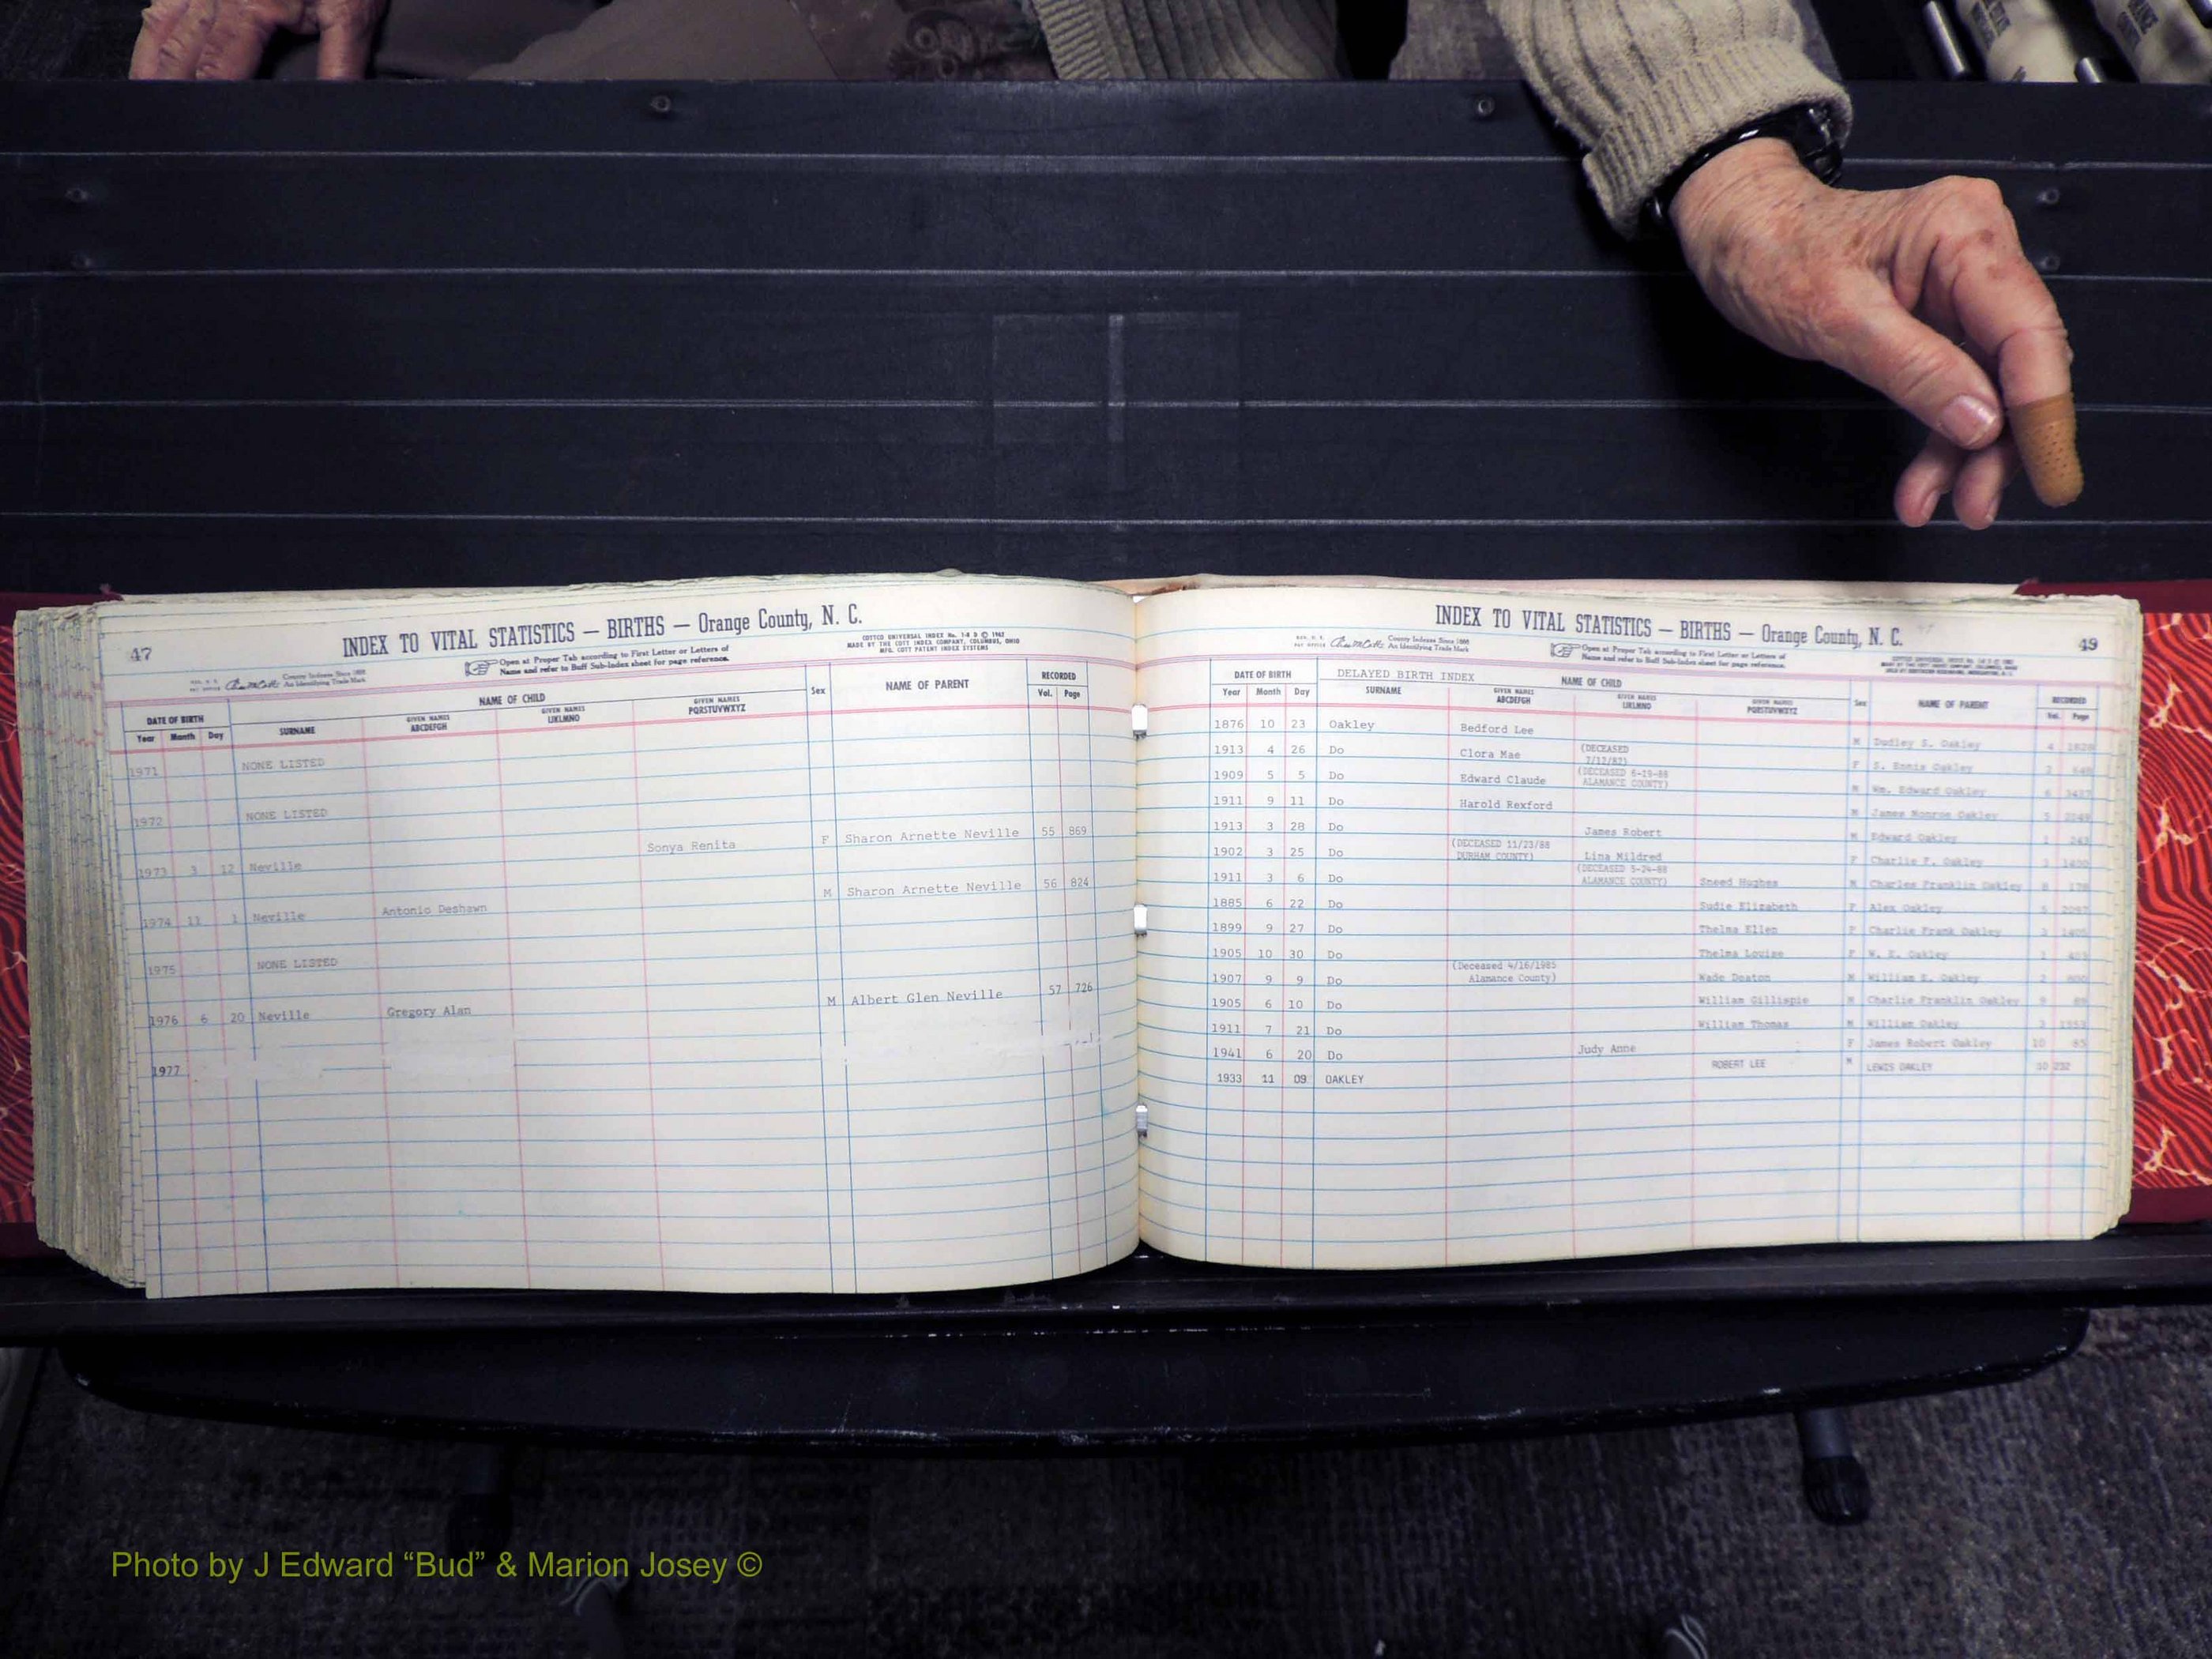 47
INDEX TO VITAL STATISTICS — BIRTHS — Orange County, N. C.
County Indexes Since 1888
An Identifying Trade Mark
Open at Proper Tab according to First Letter or Letters of
Name and refer to Buff Sub-Index sheet for page reference.
COTTCO UNIVERSAL INDEX No. 1-8 D © 1962
MADE BY THE COTT INDEX COMPANY, COLUMBUS, OHIO
MFG. COTT PATENT INDEX SYSTEMS
DATE OF BIRTH NAME OF CHILD Sex NAME OF PARENT RECORDED
Year Month Day SURNAME GIVEN NAMES ABCDEFGH GIVEN NAMES IJKLMNO GIVEN NAMES PQRSTUVWXYZ Vol. Page
1971 NONE LISTED
1972 NONE LISTED
1973 3 12 Neville Sonya Renita F Sharon Arnette Neville 55 869
1974 11 1 Neville Antonio Deshawn M Sharon Arnette Neville 56 824
1975 NONE LISTED
1976 6 20 Neville Gregory Alan M Albert Glen Neville 57 726
1977
INDEX TO VITAL STATISTICS — BIRTHS — Orange County, N. C.
49
County Indexes Since 1888
An Identifying Trade Mark
Open at Proper Tab according to First Letter or Letters of
Name and refer to Buff Sub-Index sheet for page reference.
DATE OF BIRTH DELAYED BIRTH INDEX NAME OF CHILD Sex NAME OF PARENT RECORDED
Year Month Day SURNAME GIVEN NAMES ABCDEFGH GIVEN NAMES IJKLMNO GIVEN NAMES PQRSTUVWXYZ Vol. Page
1876 10 23 Oakley Bedford Lee M Dudley S. Oakley 4
1913 4 26 Do Clora Mae (DECEASED 7/12/87) F S. Ennis Oakley
1909 5 5 Do Edward Claude (DECEASED 6-19-88 ALAMANCE COUNTY) M Wm. Edward Oakley
1911 9 11 Do Harold Rexford M James Monroe Oakley
1913 3 28 Do James Robert M Edward Oakley
1902 3 25 Do (DECEASED 11/23/88 DURHAM COUNTY) Lina Mildred F Charlie F. Oakley
1911 3 6 Do (DECEASED 5-24-88 ALAMANCE COUNTY) Sneed Hughes M Charles Franklin Oakley
1885 6 22 Do Sudie Elizabeth F Alex Oakley
1899 9 27 Do Thelma Ellen F Charlie Frank Oakley
1905 10 30 Do Thelma Louise F W. E. Oakley
1907 9 9 Do (Deceased 4/16/1985 Alamance County) Wade Deaton M William E. Oakley
1905 6 10 Do William Gillispie M Charlie Franklin Oakley
1911 7 21 Do William Thomas M William Oakley
1941 6 20 Do Judy Anne F James Robert Oakley 10 85
1933 11 09 OAKLEY ROBERT LEE M LEWIS OAKLEY 10 232
Photo by J Edward “Bud” & Marion Josey ©